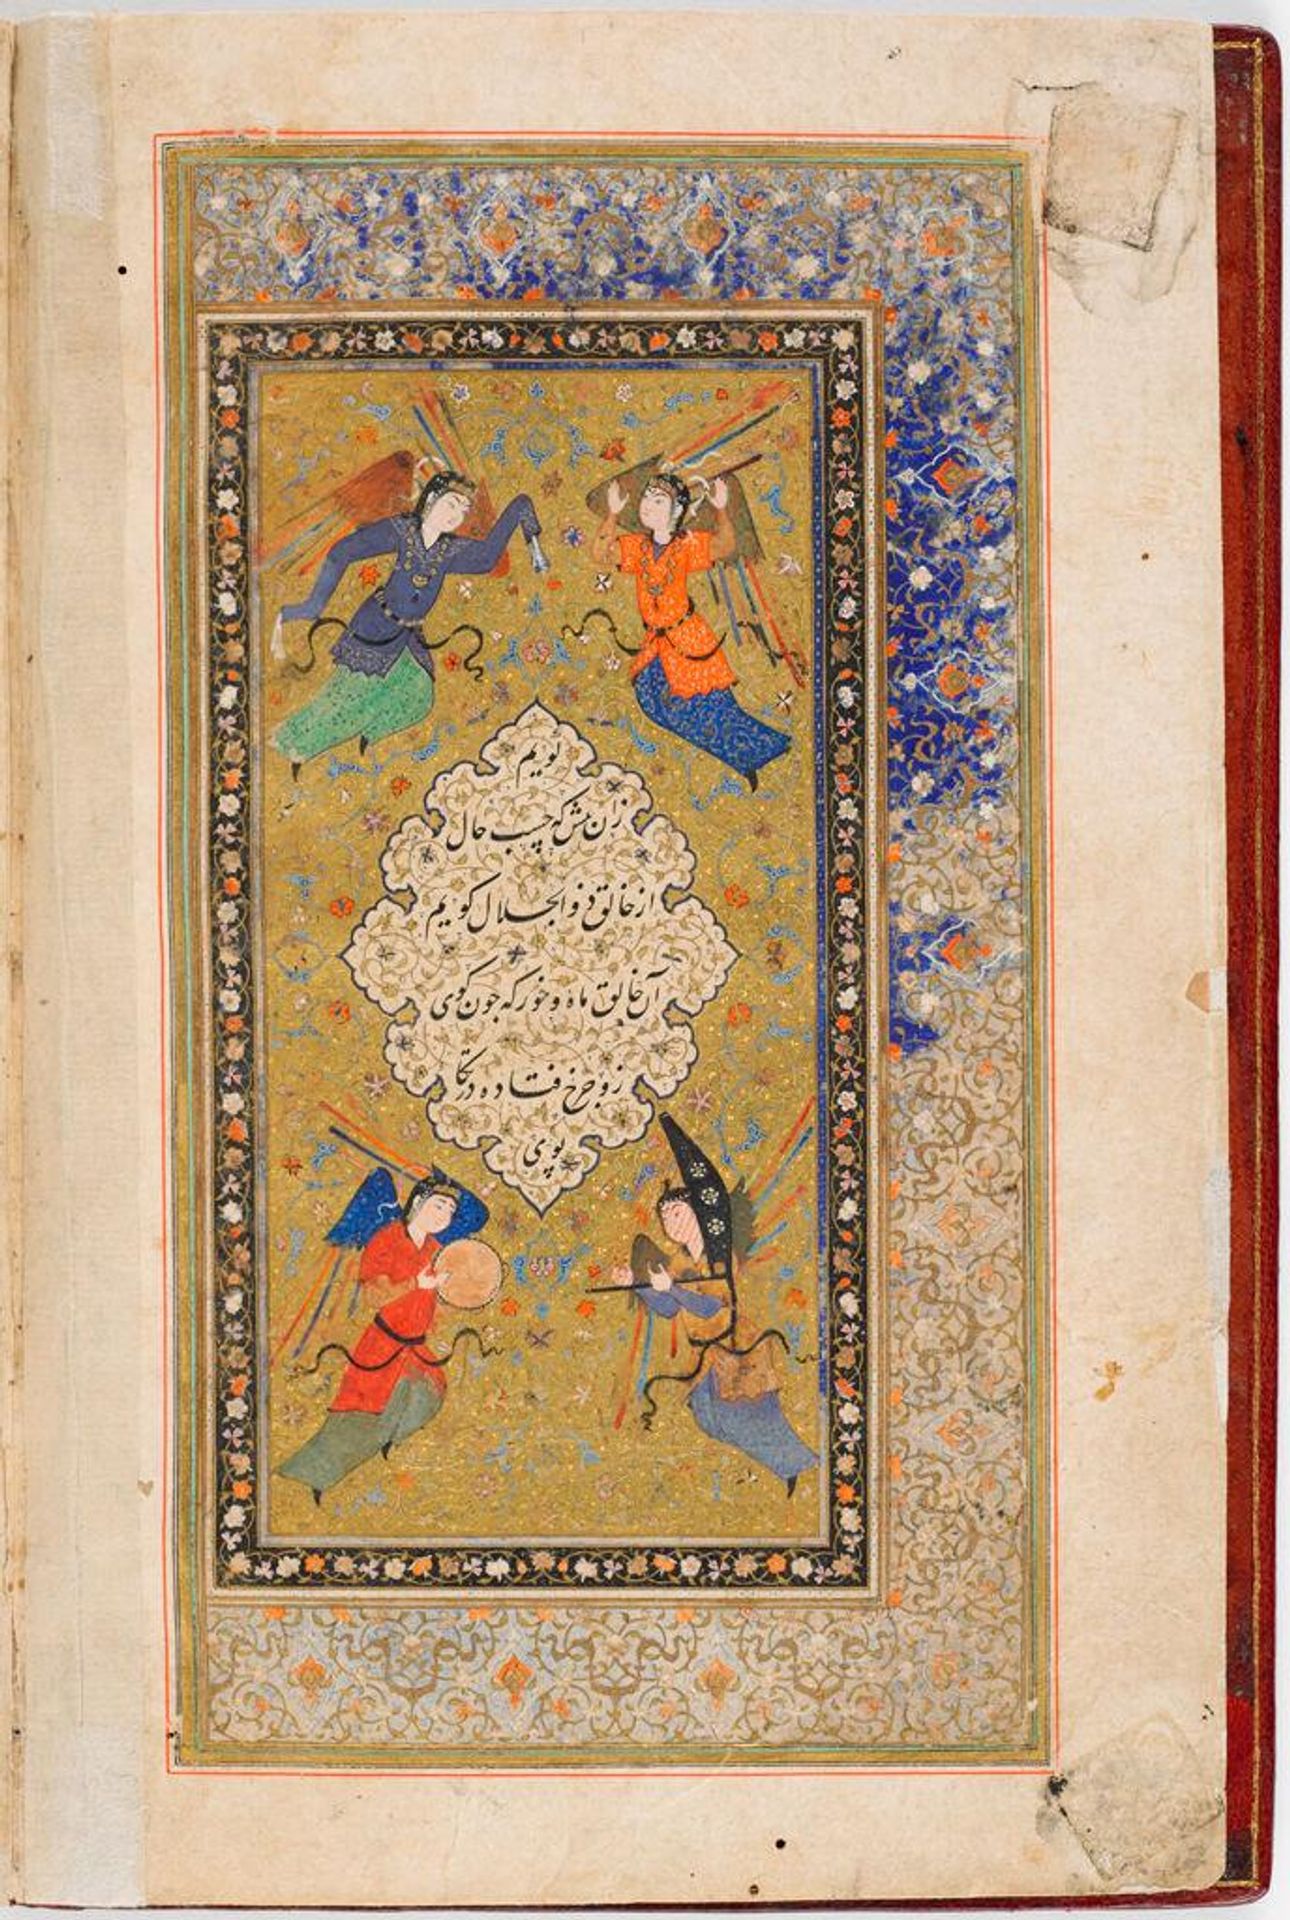 پویم
زان پیش که حسب حال
از خالق ذوالجلال گویم
آن خالق ماه و خور که چون گوی
زو چرخ فتاده در تکا
پوی